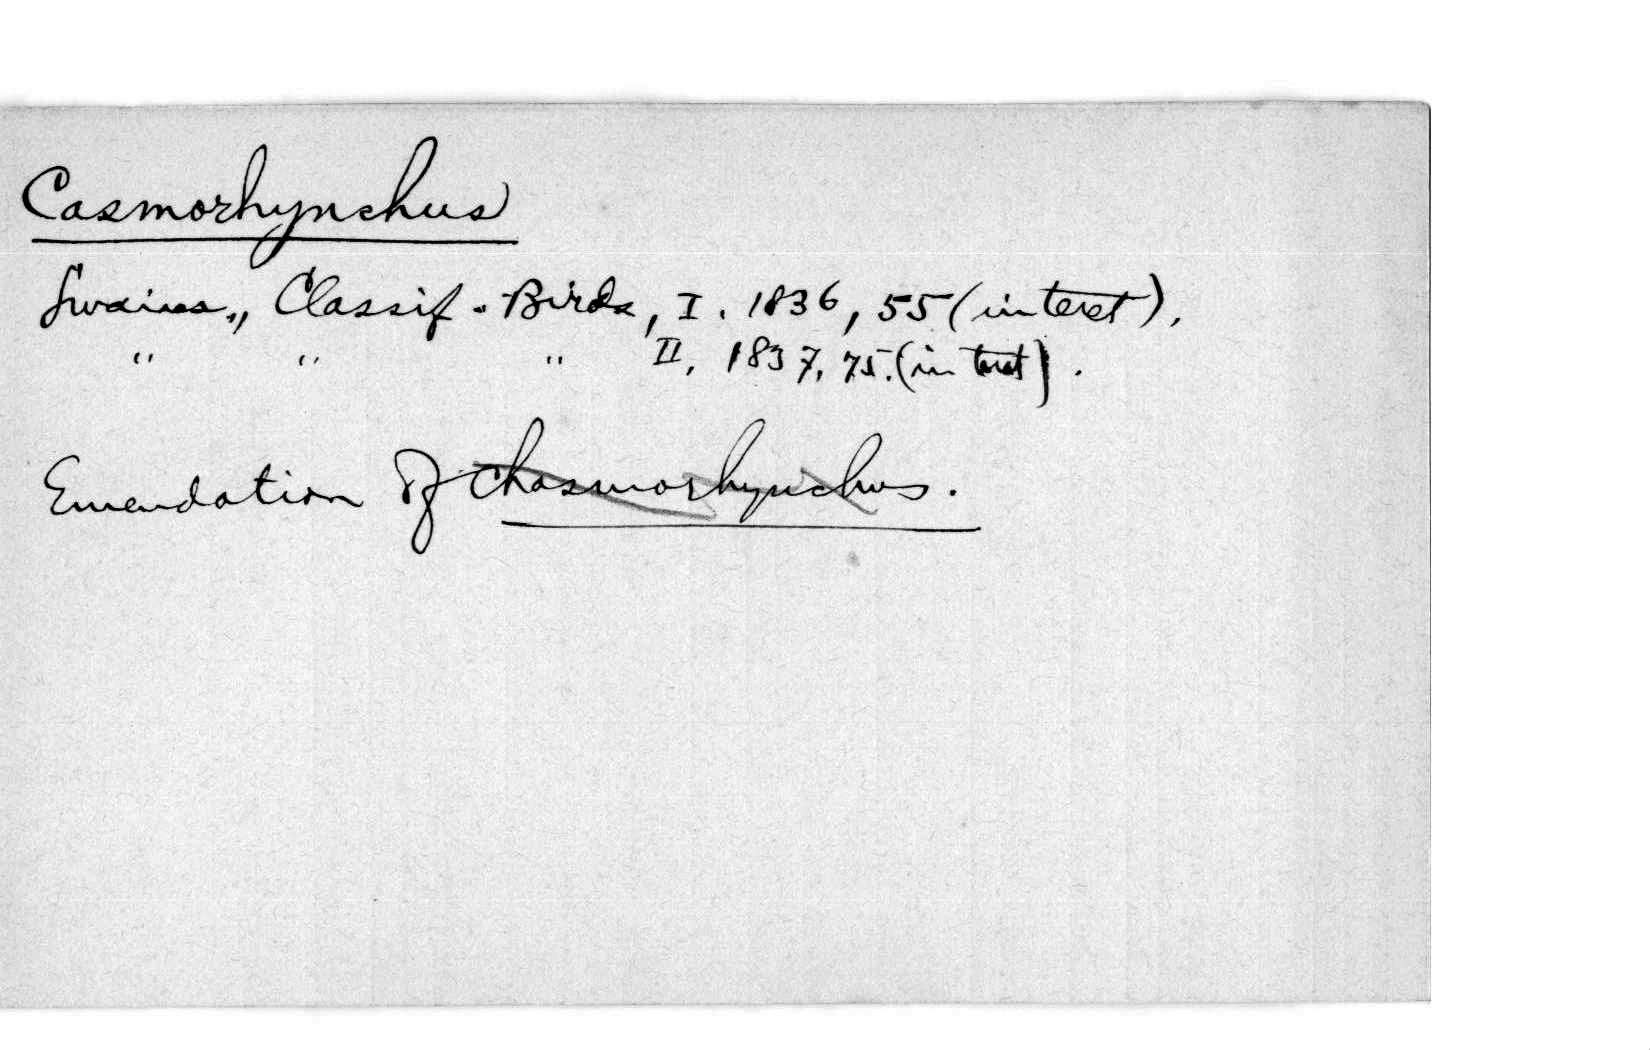 Casmorhynchus
Swains., Classif. Birds, I. 1836, 55 (in text).
" " " II, 1837, 75. (in text).
Emendation of Chasmorhynchus.